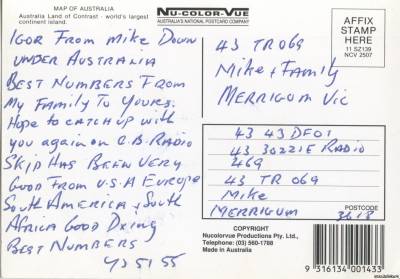 MAP OF AUSTRALIA
Australia Land of Contrast - world's largest
continent island.
NU-COLOR-VUE
AUSTRALIA'S NATIONAL POSTCARD COMPANY
AFFIX
STAMP
HERE
11 SZ139
NCV 2507
IGOR FROM MIKE DOWN
UNDER AUSTRALIA
BEST NUMBERS FROM
MY FAMILY TO YOURS.
HOPE TO CATCH UP WITH
YOU AGAIN ON C.B. RADIO
SKIP HAS BEEN VERY
GOOD FROM U.S.A EUROPE
SOUTH AMERICA + SOUTH
AFRICA GOOD DXING
BEST NUMBERS
73 51 55
43 TR 069
MIKE + FAMILY
MERRIGUM VIC
43 43 DF01
43 3OZZIE RADIO
469
43 TR 069
MIKE
MERRIGUM
POSTCODE
3618
COPYRIGHT
Nucolorvue Productions Pty. Ltd.
Telephone: (03) 560-1788
Made in Australia
9 316134 001433